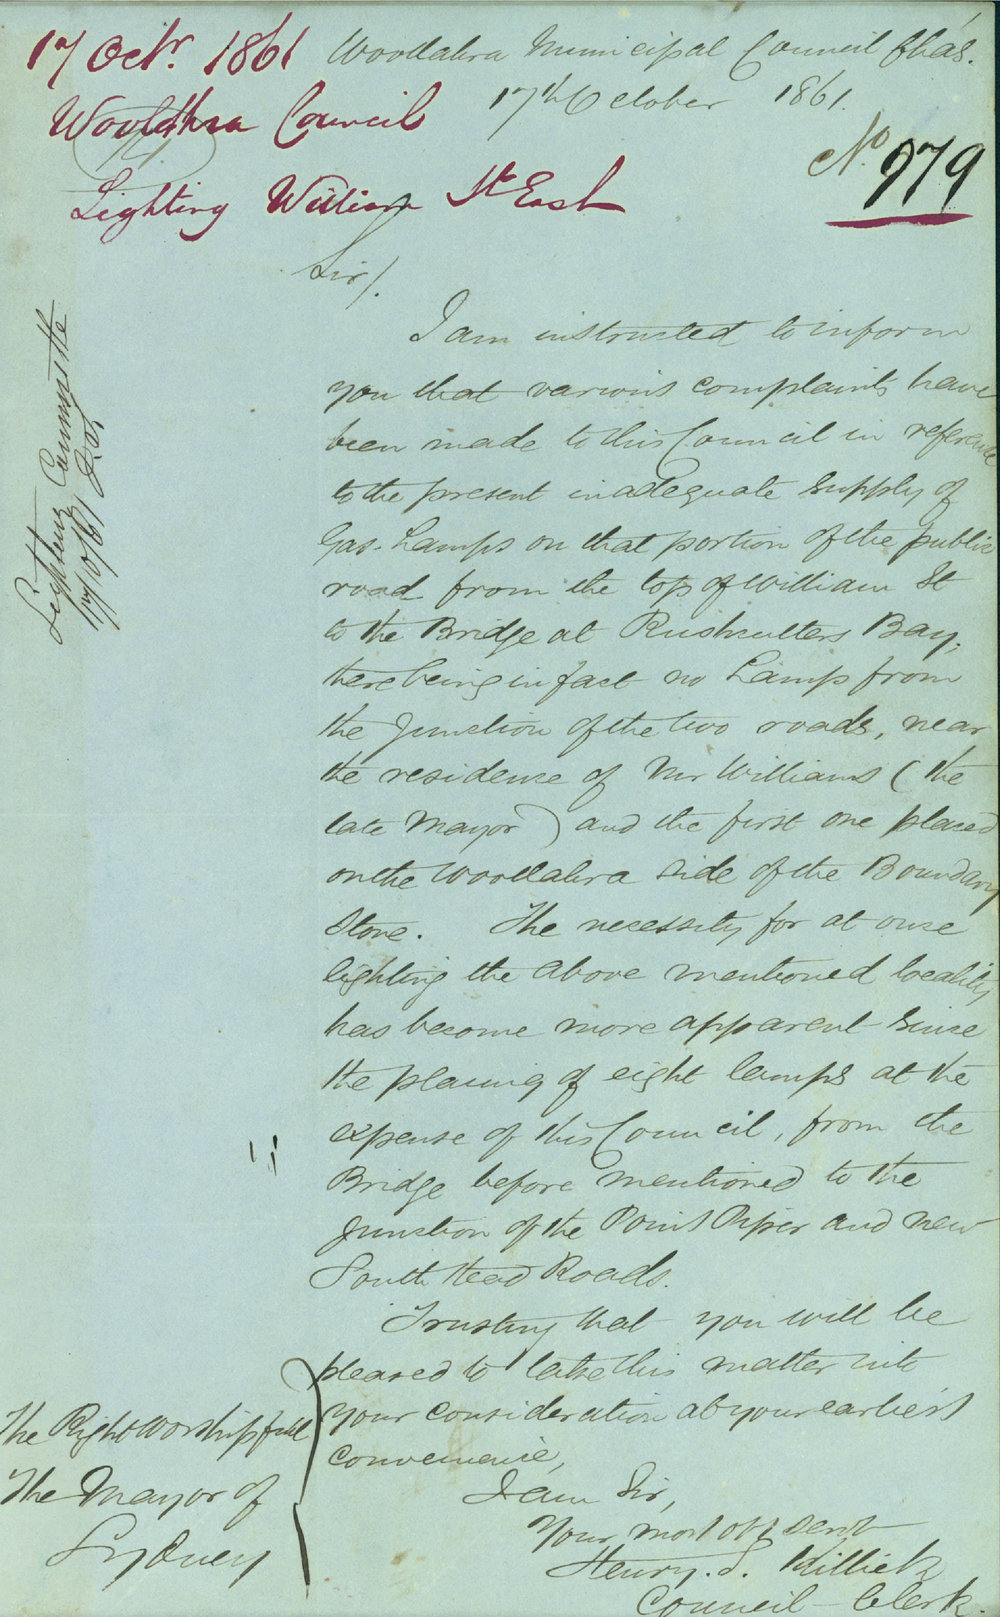 17 Octr. 1861
Woollahra Council
Lighting William St East
Woollahra Municipal Council Chas.
17th October 1861.
No 979
Lighting Committee
17/10/61
Sir/.
I am instructed to inform
you that various complaints have
been made to this Council in reference
to the present inadequate supply of
Gas-Lamps on that portion of the public
road from the top of William St
to the Bridge at Rushcutters Bay,
there being in fact no Lamps from
the Junction of the two roads, near
the residence of Mr Williams (the
late Mayor) and the first one placed
on the Woollahra side of the Boundary
Stone. The necessity for at once
lighting the above mentioned locality
has become more apparent since
the placing of eight lamps at the
expense of this Council, from the
Bridge before mentioned to the
Junction of the Point Piper and New
South Head Roads.
Trusting that you will be
pleased to take this matter into
your consideration at your earliest
convenience,
I am Sir,
Your most obt servt
Henry. J. Killick
Council Clerk.
The Right Worshipfull
The Mayor of
Sydney